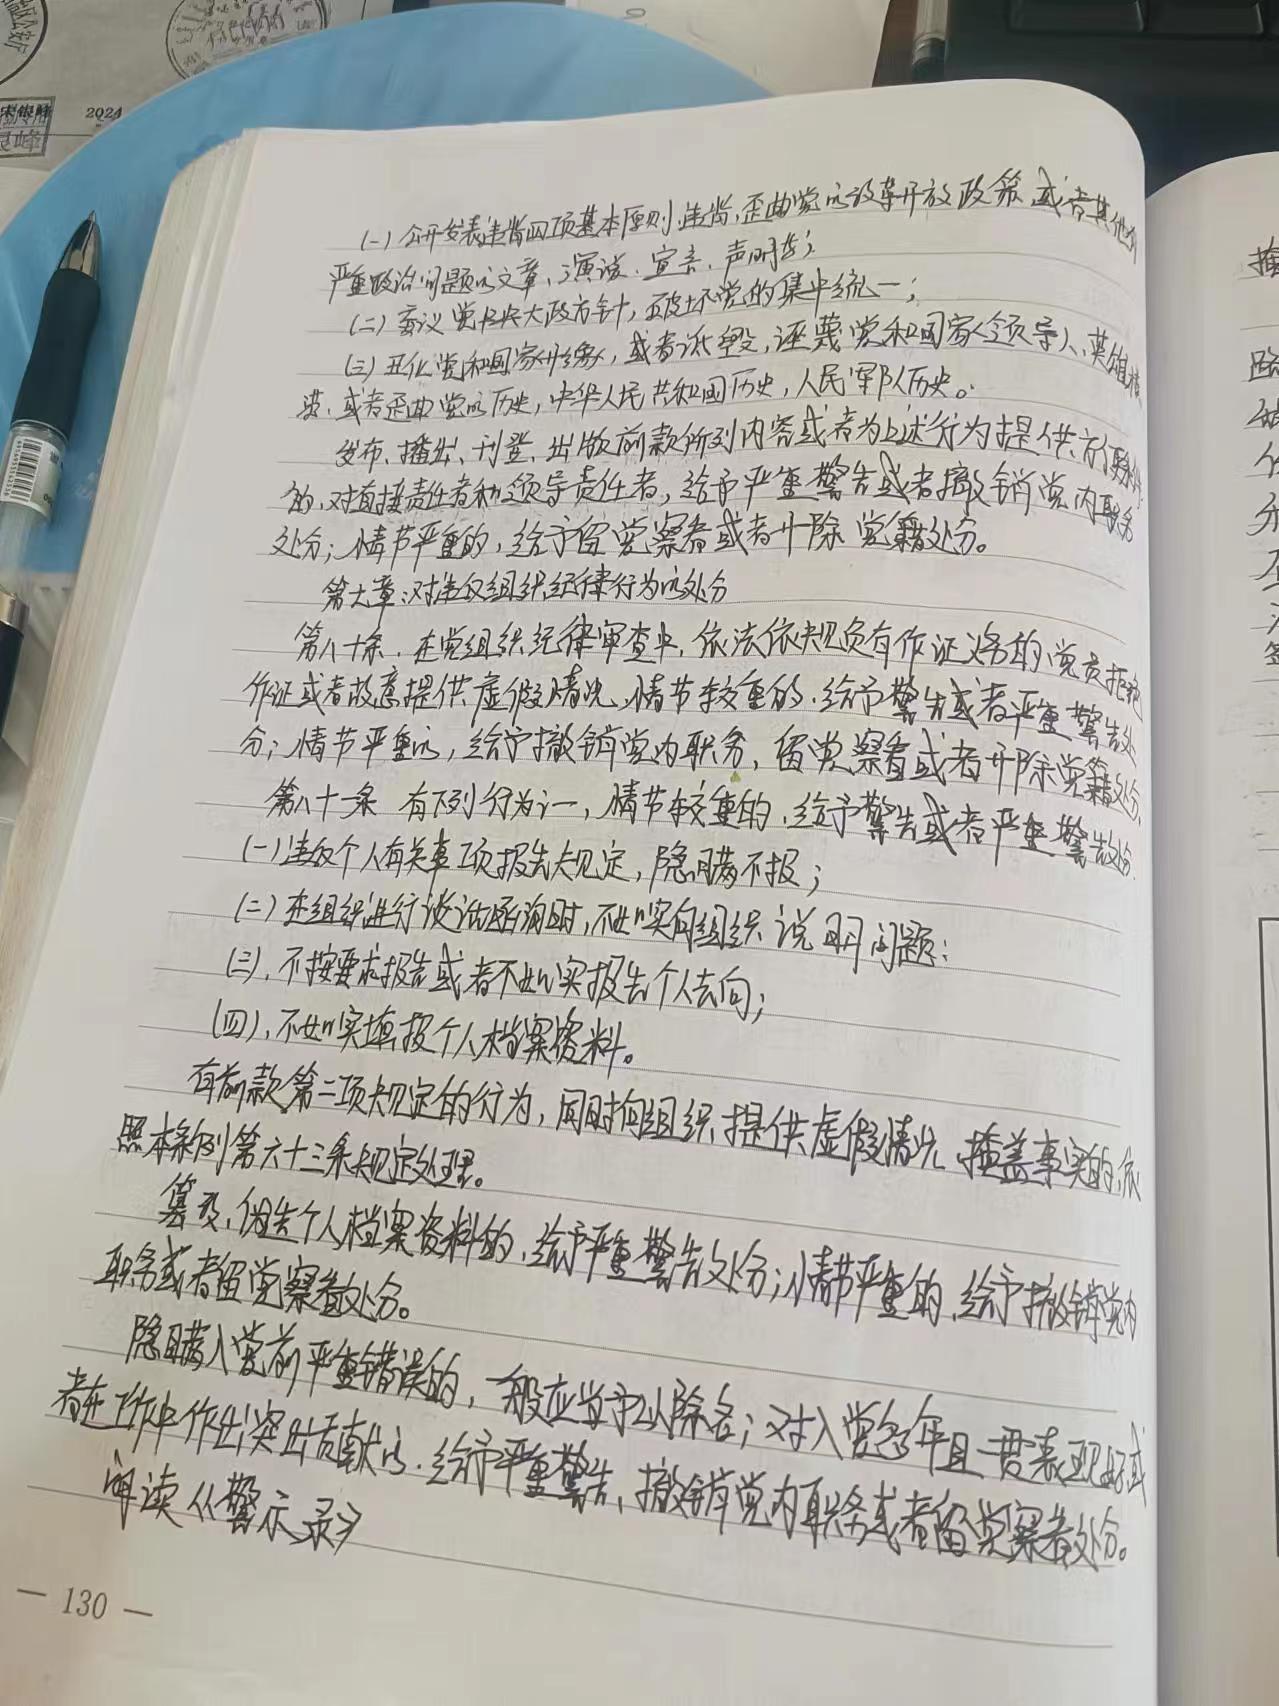 2024
(一)公开发表违背四项基本原则,违背、歪曲党的改革开放政策或者其他有
严重政治问题的文章、演说、宣言、声明等;
(二)妄议党中央大政方针,破坏党的集中统一;
(三)丑化党和国家形象,或者诋毁,诬蔑党和国家领导人、英雄模
范,或者歪曲党的历史,中华人民共和国历史,人民军队历史。
发布、播出、刊登、出版前款所列内容或者为上述行为提供方便条件
的,对直接责任者和领导责任者,给予严重警告或者撤销党内职务
处分;情节严重的,给予留党察看或者开除党籍处分。
第七章:对违反组织纪律行为的处分
第八十条,在党组织纪律审查中,依法依规负有作证义务的党员拒绝
作证或者故意提供虚假情况,情节较重的,给予警告或者严重警告处
分;情节严重的,给予撤销党内职务,留党察看或者开除党籍处分,
第八十一条 有下列行为之一,情节较重的,给予警告或者严重警告处分:
(一)违反个人有关事项报告规定,隐瞒不报;
(二)在组织进行谈话函询时,不如实向组织说明问题;
(三),不按要求报告或者不如实报告个人去向;
(四),不如实填报个人档案资料。
有前款第二项规定的行为,同时向组织提供虚假情况、掩盖事实的,依
照本条例第六十三条规定处理。
篡改,伪造个人档案资料的,给予严重警告处分;情节严重的,给予撤销党内
职务或者留党察看处分。
隐瞒入党前严重错误的,一般应当予以除名;对入党多年且一贯表现好或
者在工作中作出突出贡献的,给予严重警告、撤销党内职务或者留党察看处分。
阅读《警示录》
— 130 —